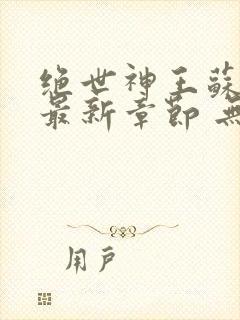 绝世神王蘇
最新章節 無
用戶